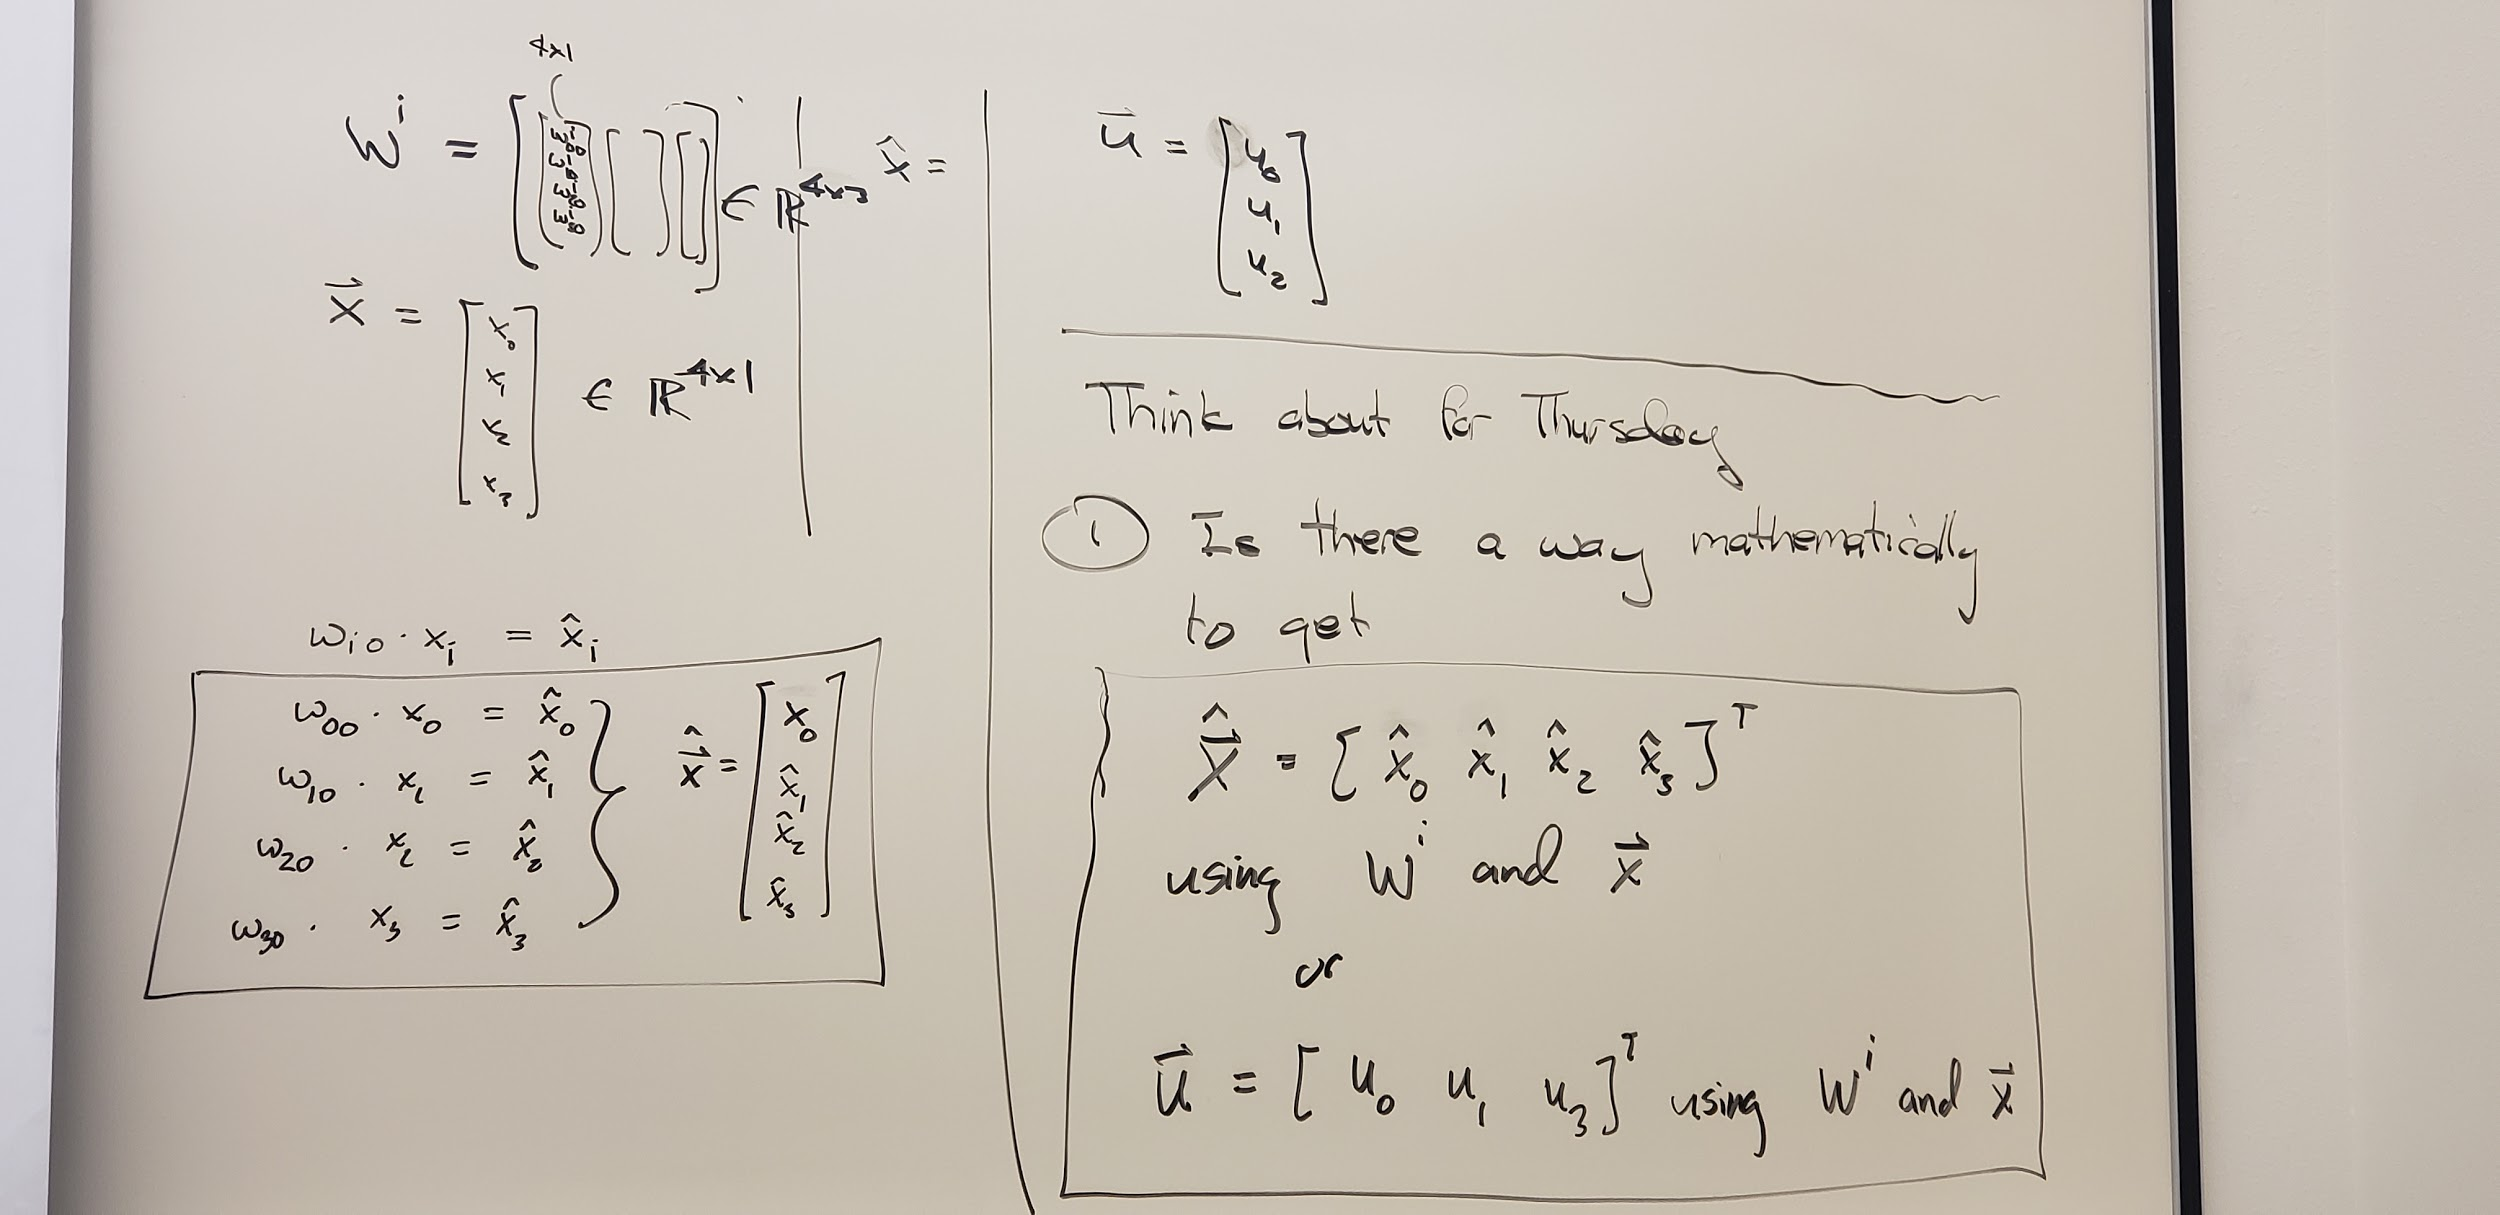 4x1
Wⁱ = [ [ω₀₀ ω₁₀ ω₂₀ ω₃₀] [ ] [ ] ] ∈ ℝ⁴ˣ³
x̂ =
x⃗ = [x₀ x₁ x₂ x₃] ∈ ℝ⁴ˣ¹
ωᵢ₀ · xᵢ = x̂ᵢ
ω₀₀ · x₀ = x̂₀
ω₁₀ · x₁ = x̂₁
ω₂₀ · x₂ = x̂₂
ω₃₀ · x₃ = x̂₃
x⃗̂ = [x₀ x̂₁ x̂₂ x̂₃]
u⃗ = [u₀ u₁ u₂]
Think about for Thursday
① Is there a way mathematically
to get
X⃗̂ = [x̂₀ x̂₁ x̂₂ x̂₃]ᵀ
using Wⁱ and x⃗
or
u⃗ = [u₀ u₁ u₃]ᵀ using Wⁱ and x⃗